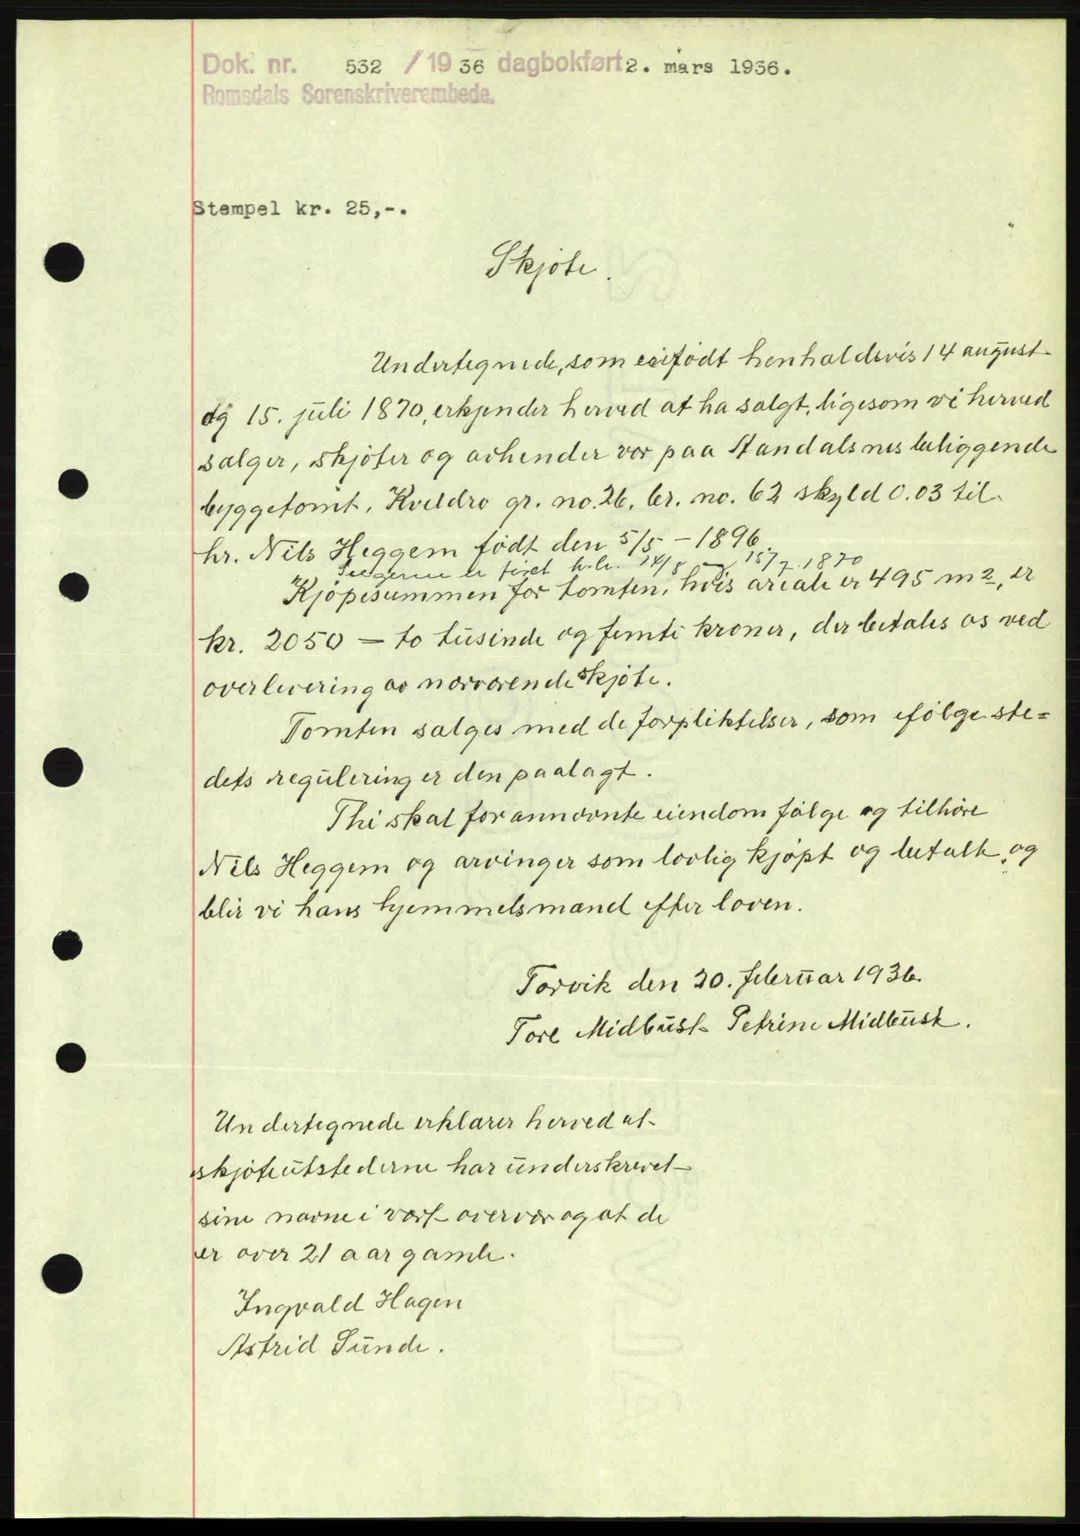 Dok. nr. 532 /1936 dagbokført 2. mars 1936.
Romsdals Sorenskriverembede.
Stempel kr. 25,-.
Skjøte.
Undertegnede, som er født henholdsvis 14 august
og 15. juli 1870, erkjender herved at ha solgt, ligesom vi herved
sælger, skjøter og avhender vor paa Aandalsnes beliggende
byggetomt, Kveldro gr. no. 26, br. no. 62 skyld 0.03 til
hr. Nils Heggem født den 5/5 - 1896.
Selgerne er født h.h. 14/8 15/7 1870
Kjøpesummen for tomten, hvis areale er 495 m2, er
kr. 2050 — to tusinde og femti kroner, der betales os ved
overlevering av nærværende skjøte.
Tomten sælges med de forpliktelser, som ifølge ste=
dets regulering er den paalagt.
Thi skal forannævnte eiendom følge og tilhøre
Nils Heggem og arvinger som lovlig kjøpt og betalt, og
blir vi hans hjemmelsmænd efter loven.
Torvik den 20. februar 1936.
Tore Midbust Petrine Midbust.
Undertegnede erklærer herved at
skjøteutstederne har underskrevet
sine navne i vort overvær og at de
er over 21 aar gamle.
Ingvald Hagen
Astrid Sunde.